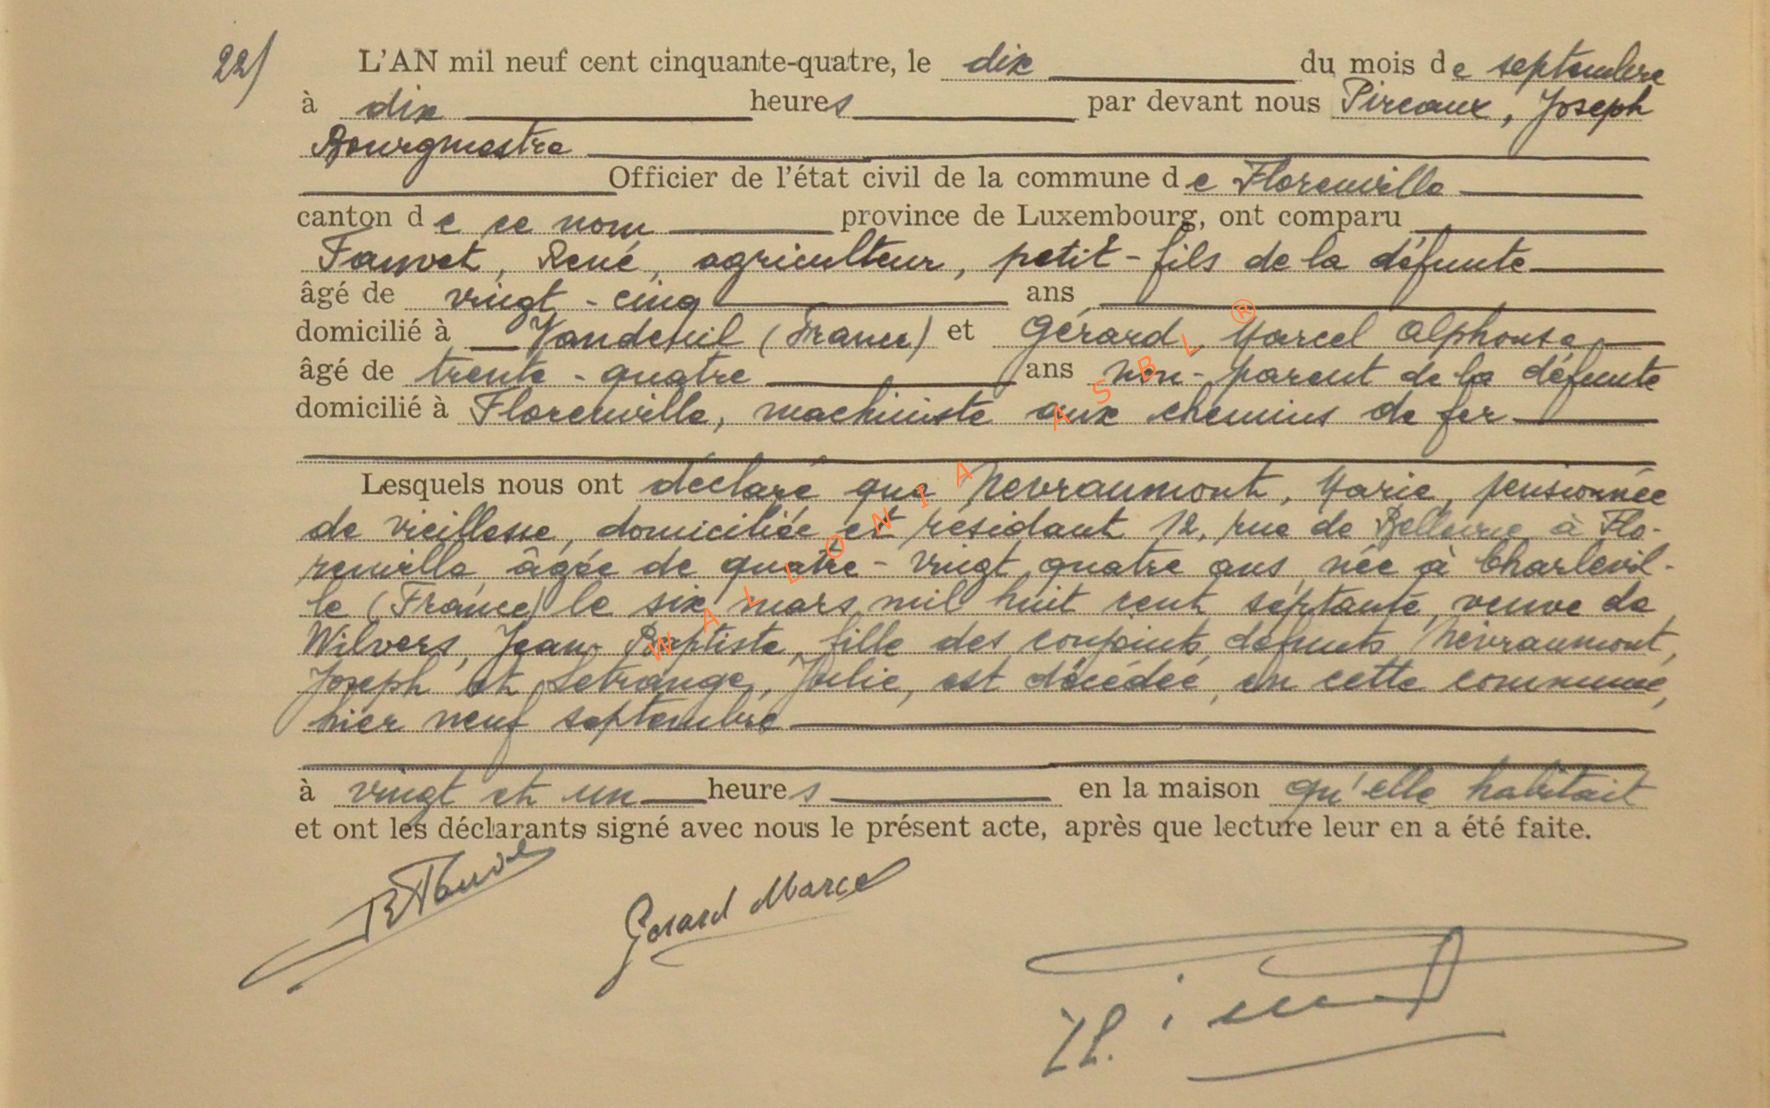 22/ L'AN mil neuf cent cinquante-quatre, le dix du mois de septembre
à dix heures par devant nous Pireaux, Joseph
Bourgmestre
Officier de l'état civil de la commune de Florenville
canton de ce nom province de Luxembourg, ont comparu
Fauvet, René, agriculteur, petit-fils de la défunte
âgé de vingt-cinq ans
domicilié à Vandeuil (France) et Gérard, Marcel Alphonse,
âgé de trente-quatre ans non-parent de la défunte
domicilié à Florenville, machiniste aux chemins de fer
Lesquels nous ont déclaré que Nevraumont, Marie, pensionnée
de vieillesse, domiciliée et résidant 12, rue de Bellevue à Flo-
renville, âgée de quatre-vingt quatre ans, née à Charlevil-
le (France) le six mars mil huit cent septante, veuve de
Wilvers, Jean Baptiste, fille des conjoints défunts Nevraumont,
Joseph et Letrange, Julie, est décédée, en cette commune,
hier neuf septembre
à vingt et un heures en la maison qu'elle habitait
et ont les déclarants signé avec nous le présent acte, après que lecture leur en a été faite.
Gerard Marcel
WALLONIA ASBL ®